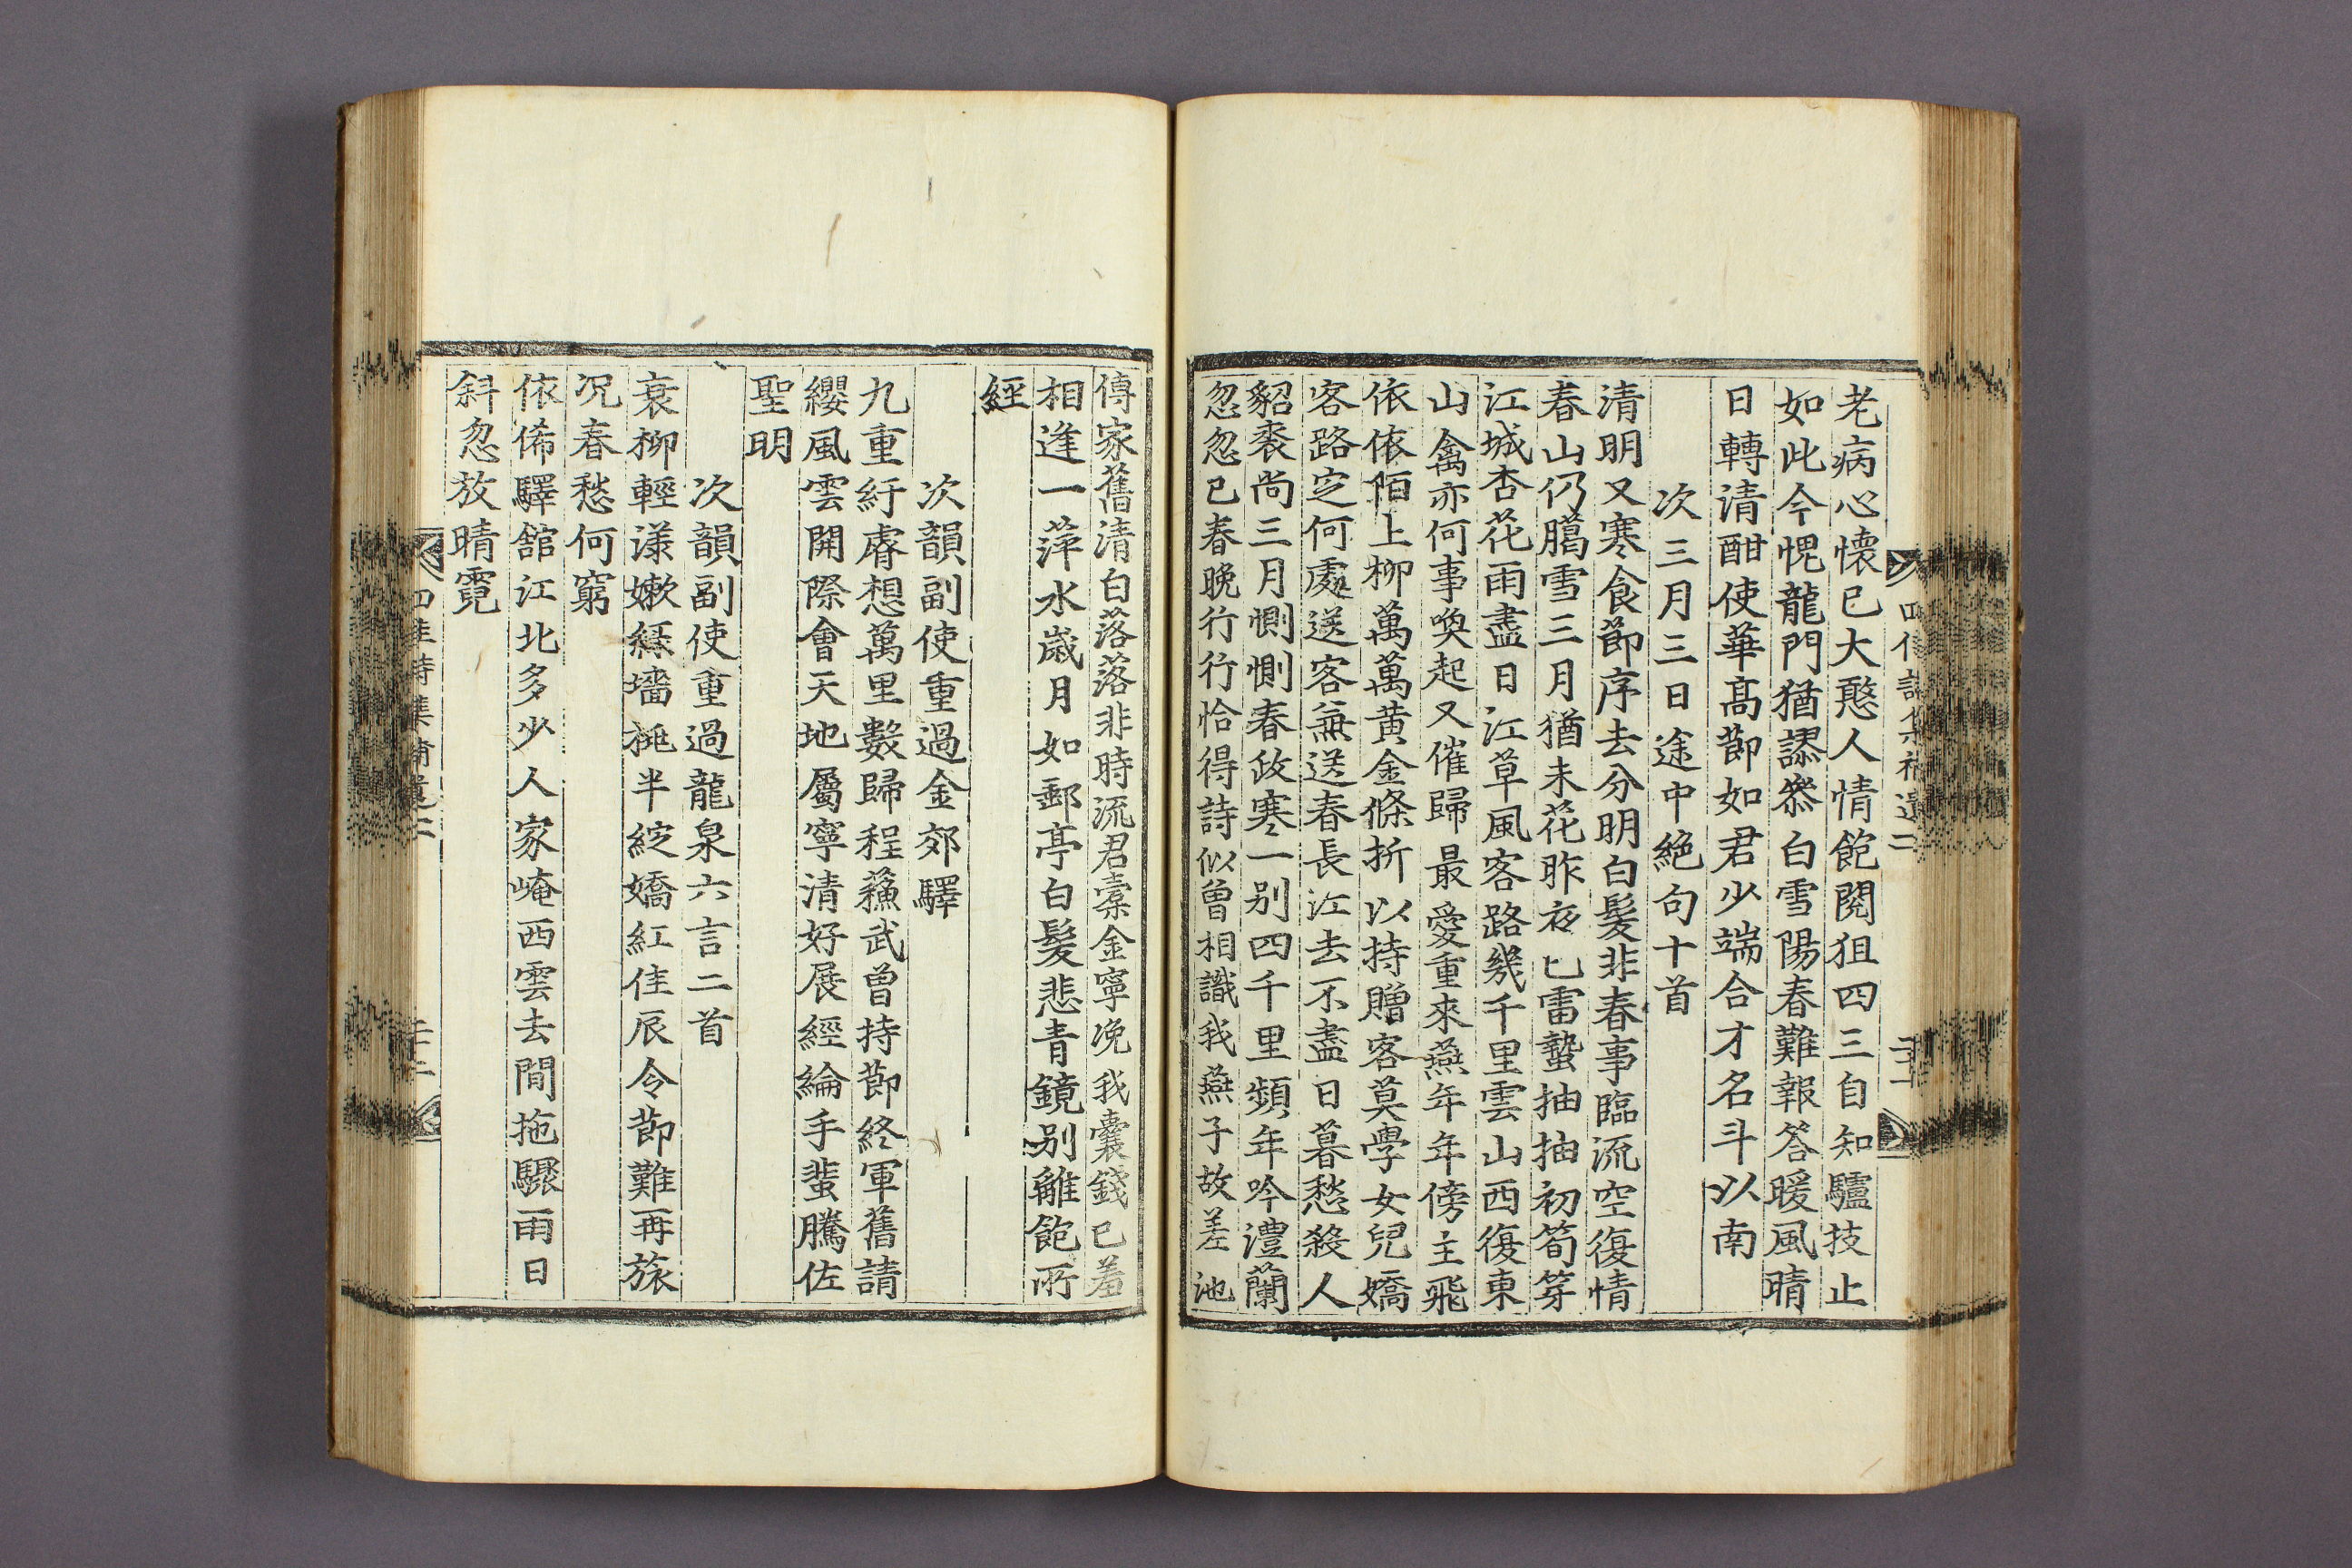 四佳詩集補遺二
老病心懷已大憨人情飽閱狙四三自知驢技止
如此今愧龍門猶謬叅白雪陽春難報答暖風晴
日轉清酣使華高節如君少端合才名斗以南
次三月三日途中絶句十首
清明又寒食節序去分明白髮非春事臨流空復情
春山仍臈雪三月猶未花昨夜已雷蟄抽抽初筍芽
江城杏花雨盡日江草風客路幾千里雲山西復東
山禽亦何事喚起又催歸最愛重來燕年年傍主飛
依依陌上柳萬萬黄金條折以持贈客莫學女兒嬌
客路定何處送客兼送春長江去不盡日暮愁殺人
貂裘尚三月惻惻春政寒一别四千里頻年吟澧蘭
忽忽已春晚行行恰得詩似曾相識我燕子故差池
傳家舊清白落落非時流君橐金寧浼我囊錢已羞
相逢一萍水歲月如郵亭白髮悲青鏡别離飽所
經
次韻副使重過金郊驛
九重紆睿想萬里數歸程蘓武曾持節終軍舊請
纓風雲開際會天地屬寧清好展經綸手蜚騰佐
聖明
次韻副使重過龍泉六言二首
衰柳輕漾嫩緑墻桃半綻嬌紅佳辰令節難再旅
况春愁何窮
依俙驛舘江北多少人家崦西雲去閒拖驟雨日
斜忽放晴霓
四佳詩集補遺二